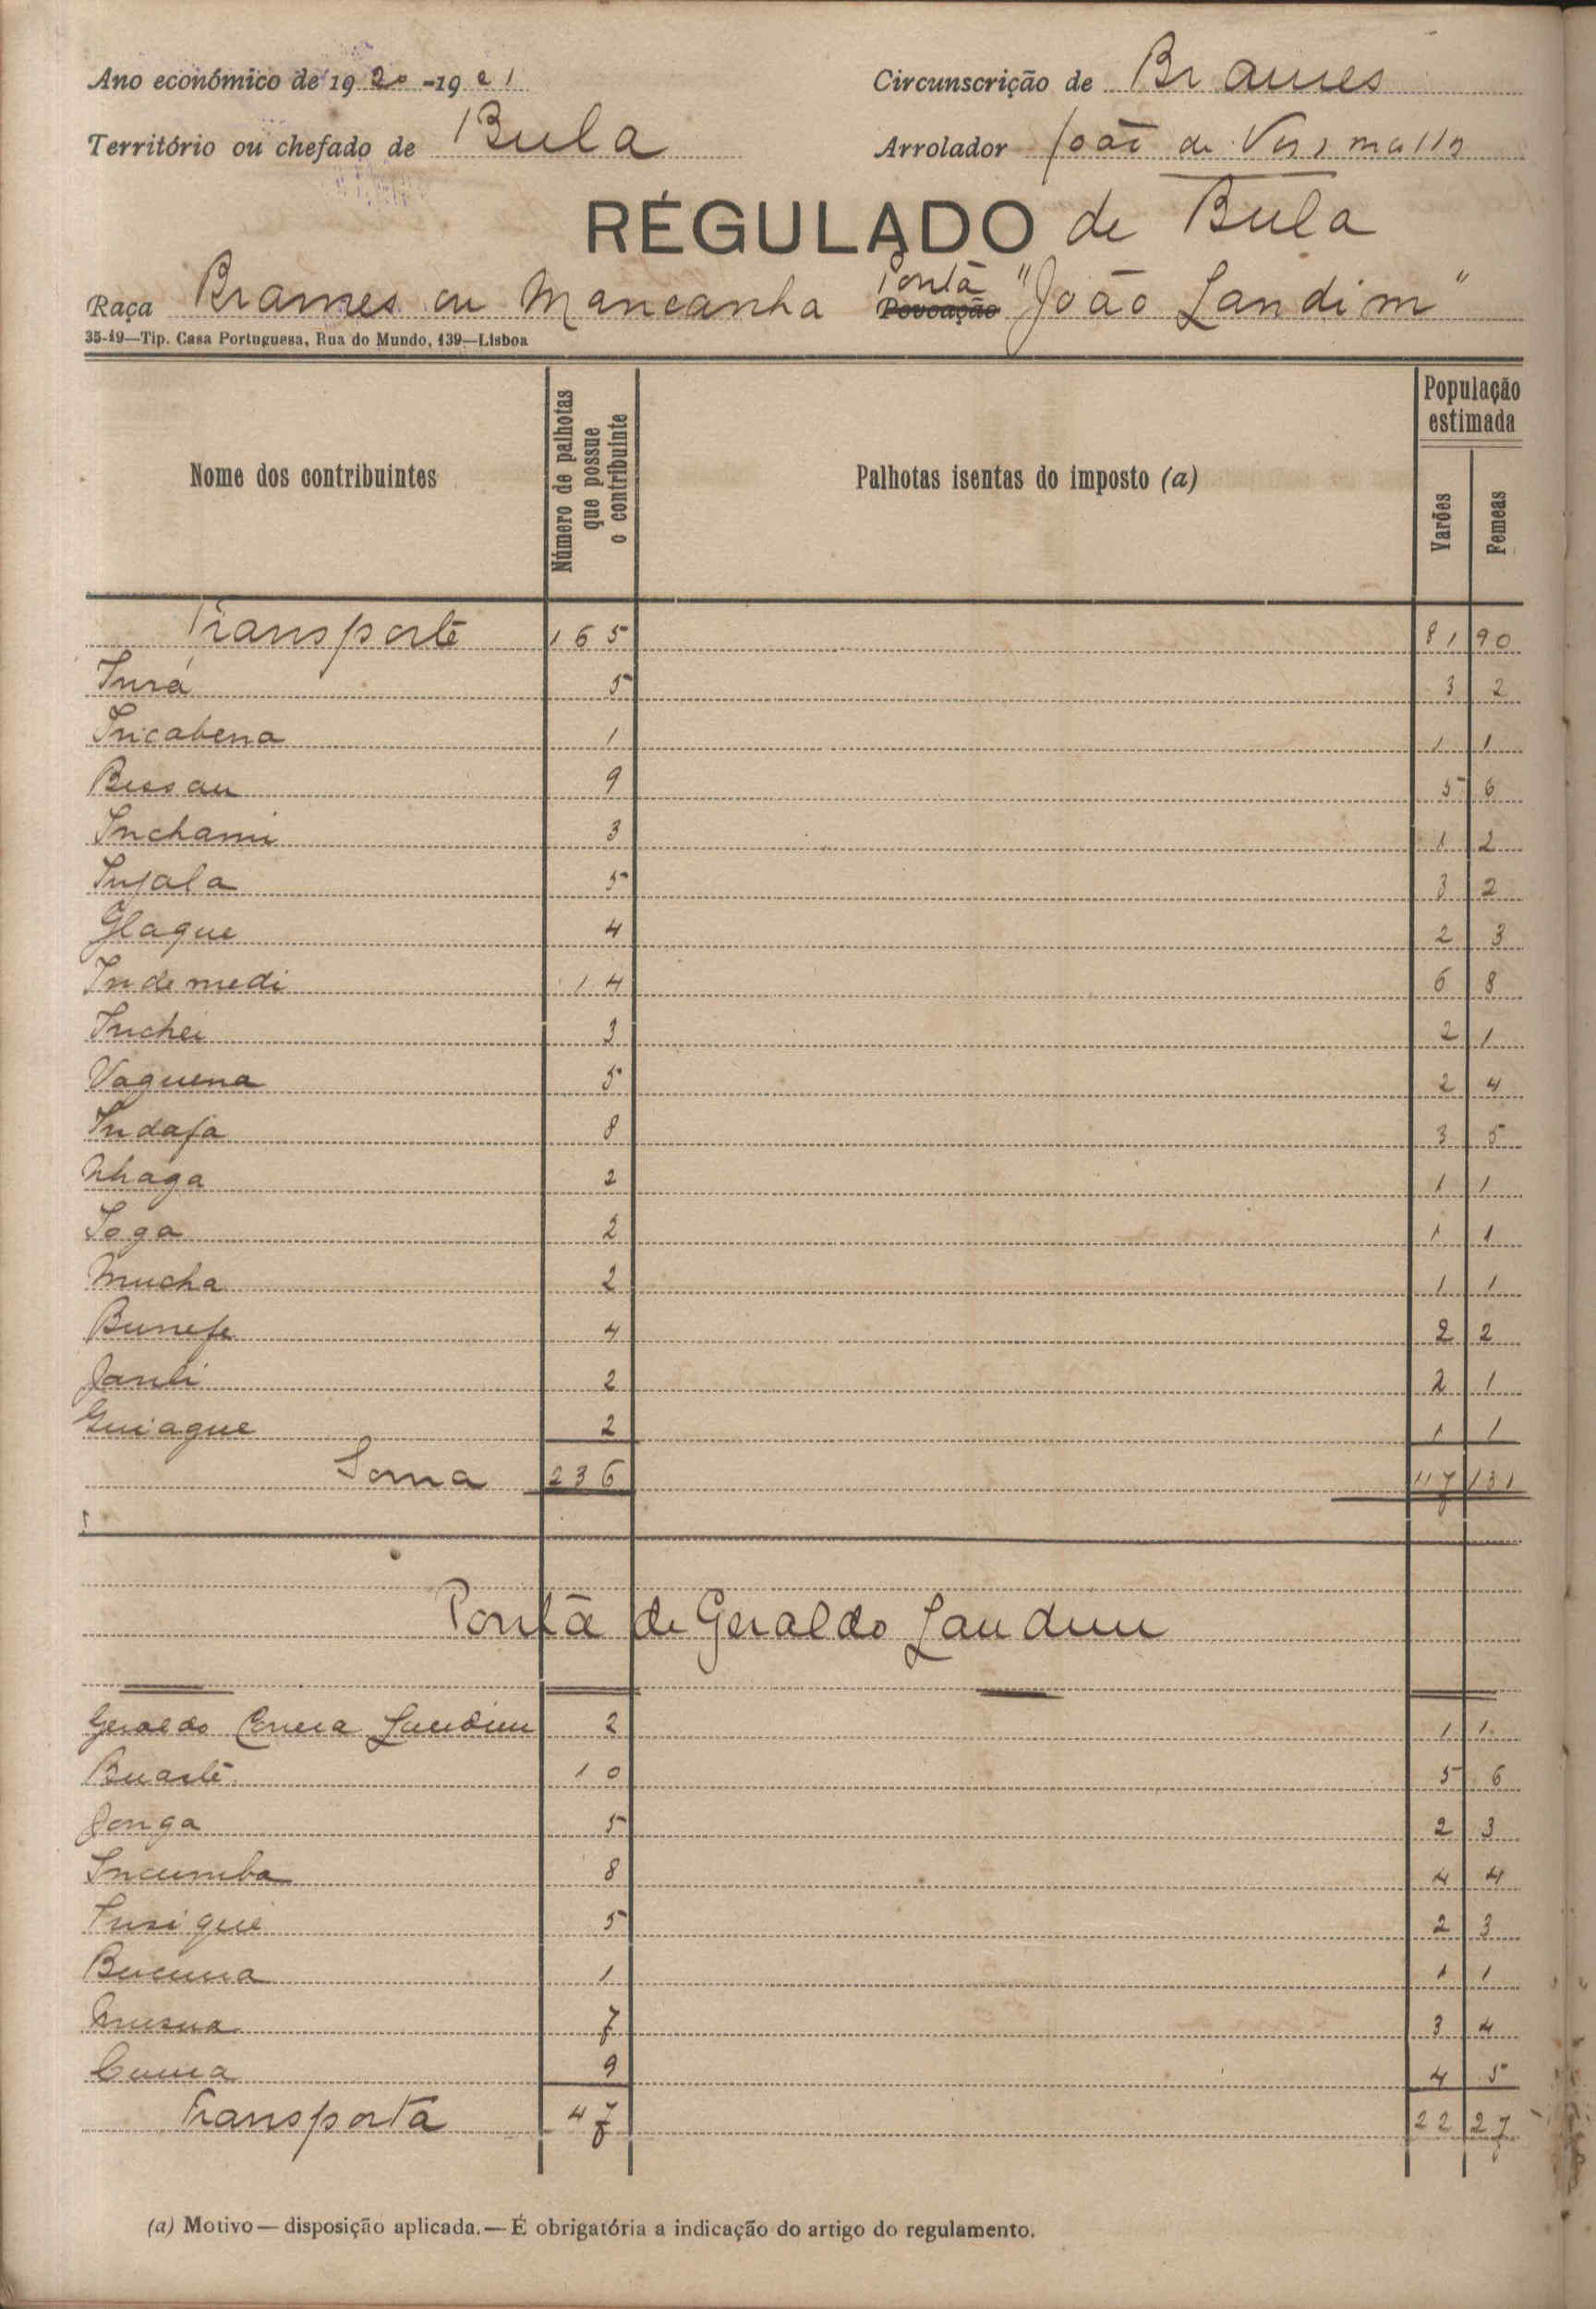 Ano económico de 1920-1921 Circunscrição de Brames
Território ou chefado de Bula Arrolador João de
RÉGULADO de Bula
Raça Brames ou Mancanha Ponta Povoação "João Landim"
35-19—Tip. Casa Portuguesa, Rua do Mundo, 139—Lisboa
Nome dos contribuintes Número de palhotas que possue o contribuinte Palhotas isentas do imposto (a) População estimada Varões Femeas
Transporte 165 81 90
Inrá 5 3 2
Incabena 1 1 1
Bissau 9 5 6
Inchami 3 1 2
Injala 5 3 2
Glaque 4 2 3
Indemedi 14 6 8
Inchei 3 2 1
Vaguena 5 2 4
Indafa 8 3 5
Nhaga 2 1 1
Toga 2 1 1
Mucha 2 1 1
Bunefe 4 2 2
Janti 2 2 1
Guiague 2 1 1
Soma 236 117 131
Ponta de Geraldo Landim
Geraldo Correia Landim 2 1 1
Buarté 10 5 6
Jonga 5 2 3
Incumba 8 4 4
5 2 3
1 1 1
7 3 4
9 4 5
Transporta 47 22 27
(a) Motivo — disposição aplicada. — É obrigatória a indicação do artigo do regulamento.